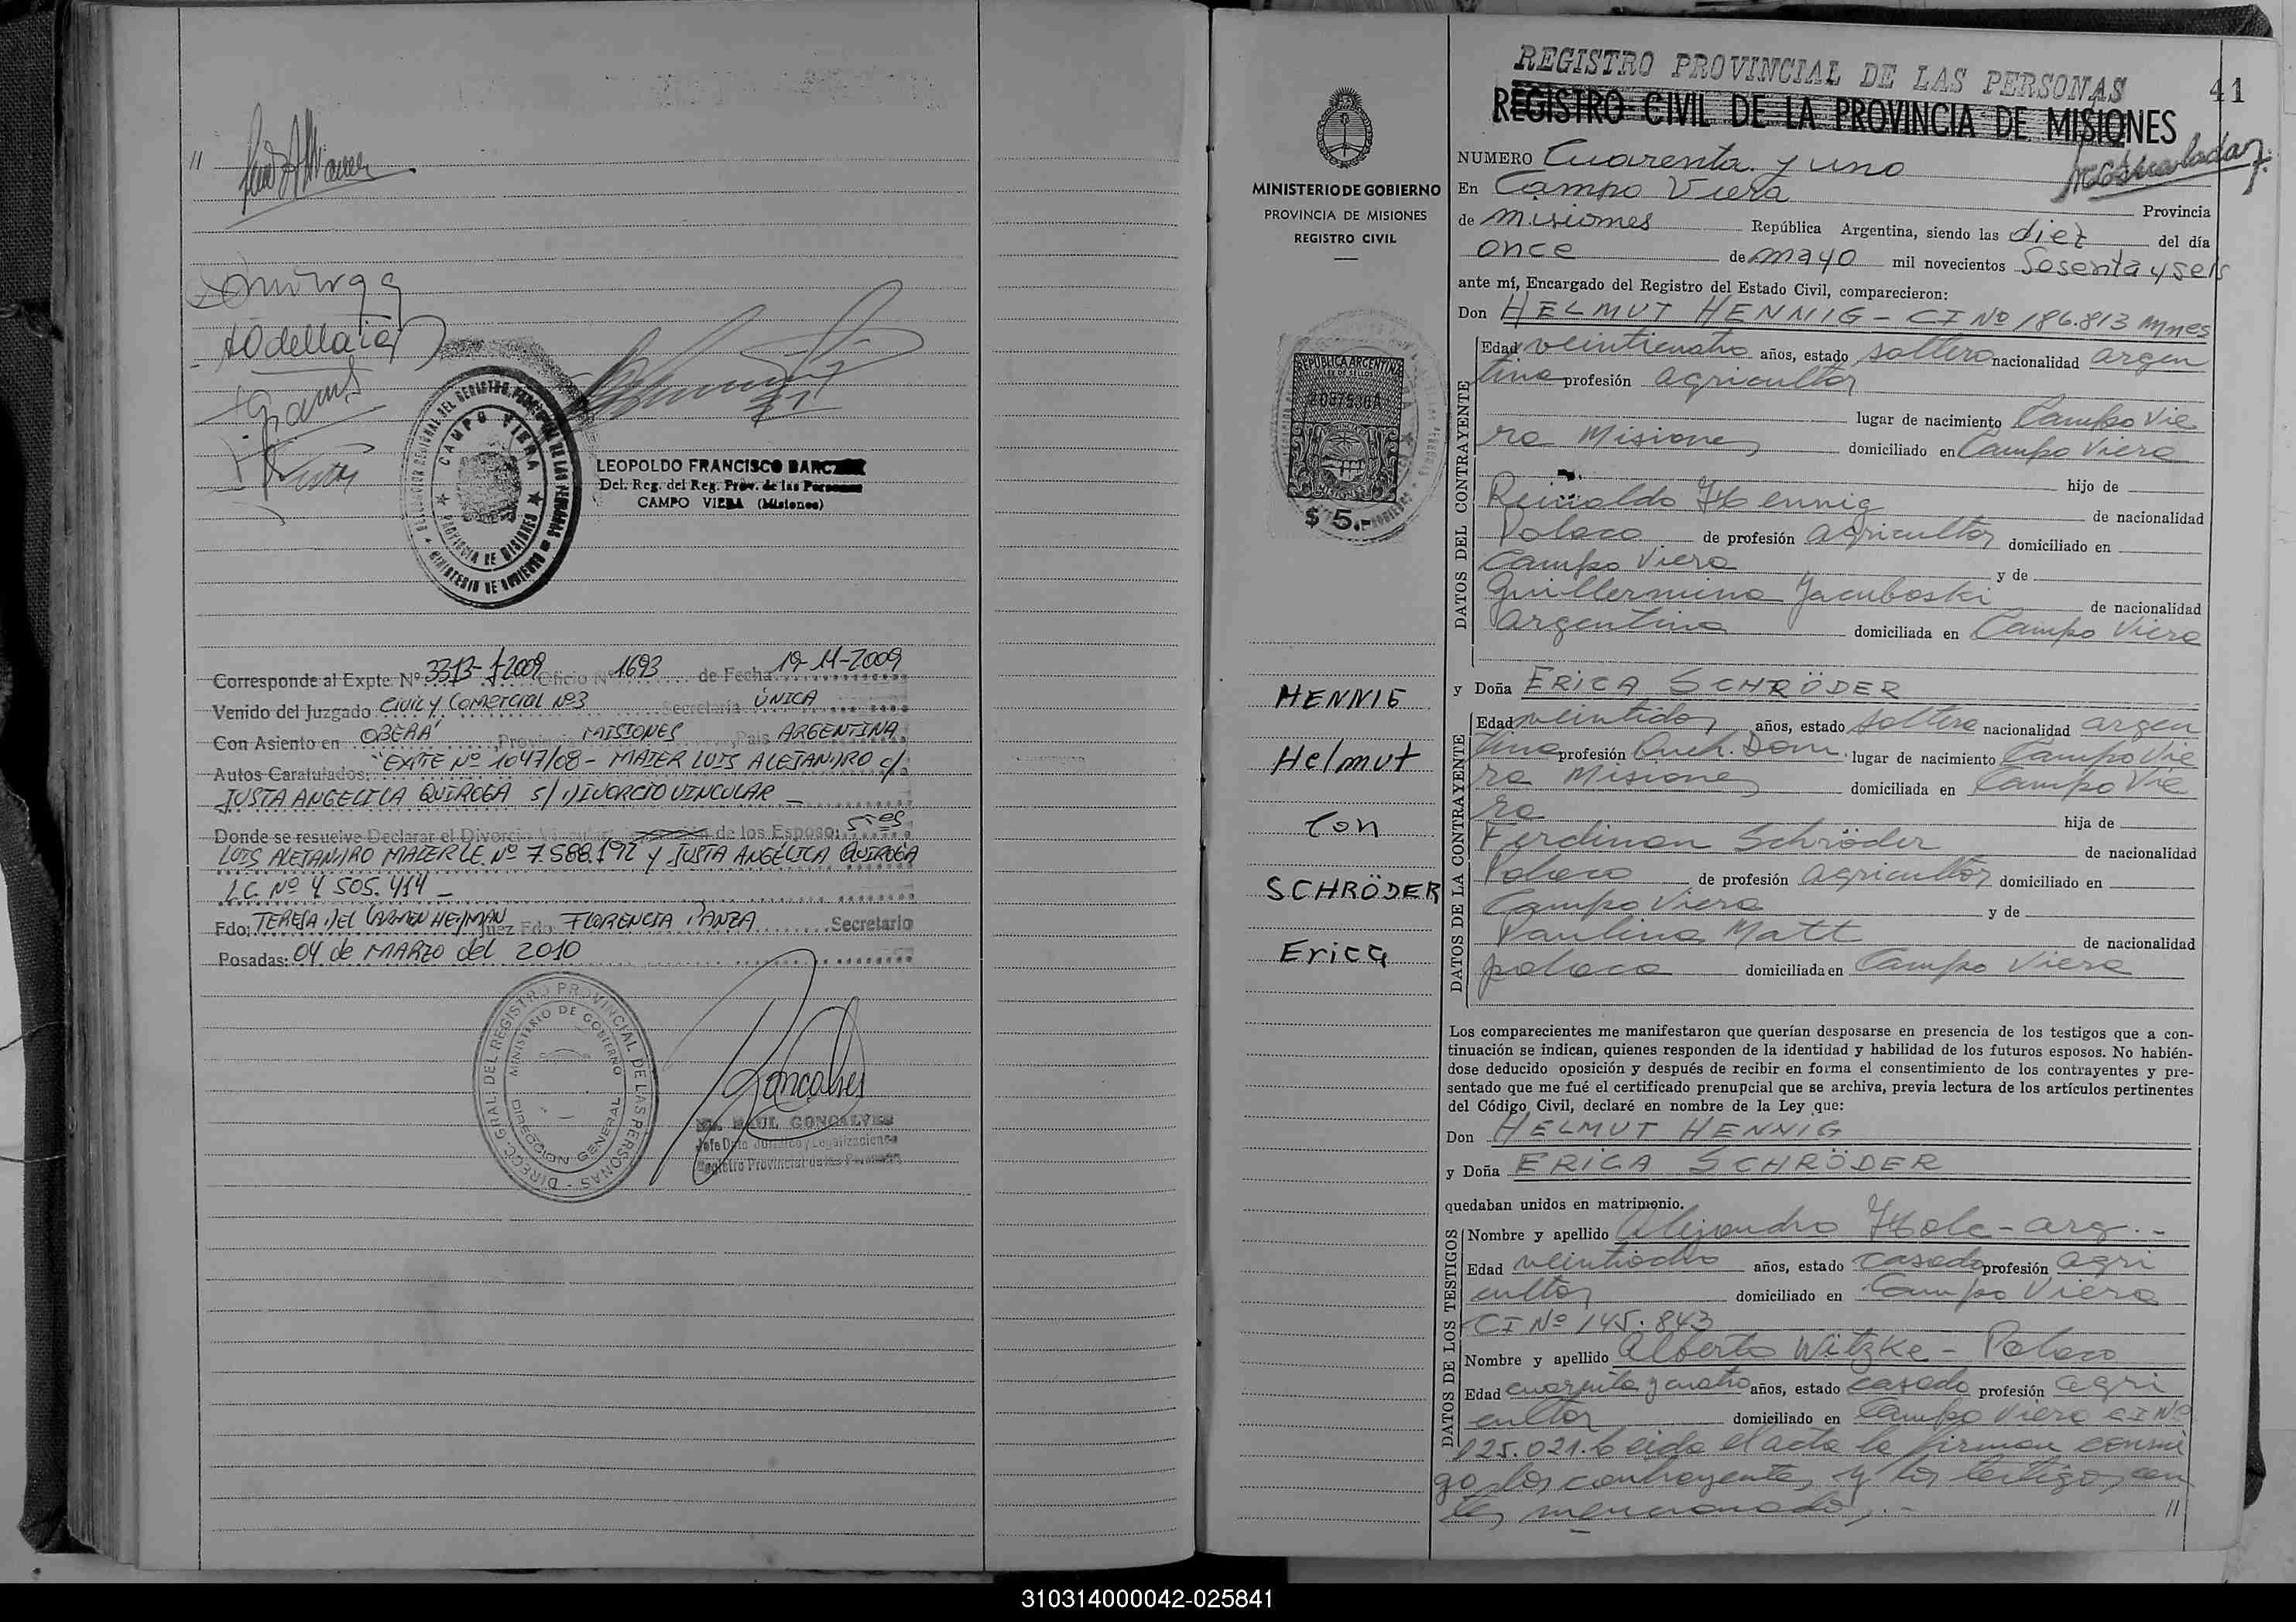 //
LEOPOLDO FRANCISCO
Del. Reg. del Reg. Prov. de las Personas
CAMPO VIERA (Misiones)
CAMPO VIERA
PROVINCIA DE MISIONES
MINISTERIO DE GOBIERNO
Corresponde al Expte Nº 3313-J-2009 Oficio Nº 1693 de Fecha 19-11-2009
Venido del Juzgado CIVIL Y COMERCIAL Nº3 Secretaria ÚNICA
Con Asiento en OBERÁ, Prov. MISIONES, País ARGENTINA
Autos Caratulados: "EXPTE Nº 1047/08 - MAIER LUIS ALEJANDRO c/
JUSTA ANGELICA QUIROGA S/ DIVORCIO VINCULAR -
Donde se resuelve Declarar el Divorcio Vincular de los Esposos: Sres
LUIS ALEJANDRO MAIER L.E. Nº 7.588.192 Y JUSTA ANGÉLICA QUIROGA
L.C. Nº 4 505.414 -
Fdo: TERESA DEL CARMEN HEJMAN Juez Fdo: FLORENCIA PANZA Secretario
Posadas: 04 de MARZO del 2010
DIRECC. GRAL. DEL REGISTRO PROVINCIAL DE LAS PERSONAS
MINISTERIO DE GOBIERNO
DIRECCION GENERAL
Goncalves
RAUL GONCALVES
Jefe Dpto Jurídico y Legalizaciones
Registro Provincial de las Personas
REGISTRO PROVINCIAL DE LAS PERSONAS
41
REGISTRO CIVIL DE LA PROVINCIA DE MISIONES
MINISTERIO DE GOBIERNO
PROVINCIA DE MISIONES
REGISTRO CIVIL
REPUBLICA ARGENTINA
LEY DE SELLOS
$ 5.-
HENNIG
Helmut
con
SCHRÖDER
Erica
NUMERO Cuarenta y uno
En Campo Viera Provincia
de misiones República Argentina, siendo las diez del día
once de mayo mil novecientos Sesenta y seis
ante mí, Encargado del Registro del Estado Civil, comparecieron:
Don HELMUT HENNIG - CI Nº 186.813 Mnes
DATOS DEL CONTRAYENTE
Edad veinticuatro años, estado soltero nacionalidad argen
tina profesión agricultor
lugar de nacimiento Campo Vie
ra Misiones domiciliado en Campo Viera
hijo de
Reinaldo Hennig de nacionalidad
Polaco de profesión agricultor domiciliado en
Campo Viera y de
Guillermina Jacuboski de nacionalidad
argentina domiciliada en Campo Viera
y Doña ERICA SCHRÖDER
DATOS DE LA CONTRAYENTE
Edad veintidos años, estado soltera nacionalidad argen
tina profesión Queh. Dom. lugar de nacimiento Campo Vie
ra Misiones domiciliada en Campo Vie
ra hija de
Ferdinan Schröder de nacionalidad
Polaco de profesión agricultor domiciliado en
Campo Viera y de
Paulina Matt de nacionalidad
polaca domiciliada en Campo Viera
Los comparecientes me manifestaron que querían desposarse en presencia de los testigos que a con-
tinuación se indican, quienes responden de la identidad y habilidad de los futuros esposos. No habién-
dose deducido oposición y después de recibir en forma el consentimiento de los contrayentes y pre-
sentado que me fué el certificado prenupcial que se archiva, previa lectura de los artículos pertinentes
del Código Civil, declaré en nombre de la Ley que:
Don HELMUT HENNIG
y Doña ERICA SCHRÖDER
quedaban unidos en matrimonio.
DATOS DE LOS TESTIGOS
Nombre y apellido Alejandro - arg. -
Edad veintiocho años, estado casado profesión agri
cultor domiciliado en Campo Viera
CI Nº 145.843
Nombre y apellido Alberto Witzke - Polaco
Edad cuarenta y cuatro años, estado casado profesión agri
cultor domiciliado en Campo Viera CI Nº
125.021. Leida el acta la firman conmi
go los contrayentes y los testigos an
tes mencionados. -
//
310314000042-025841